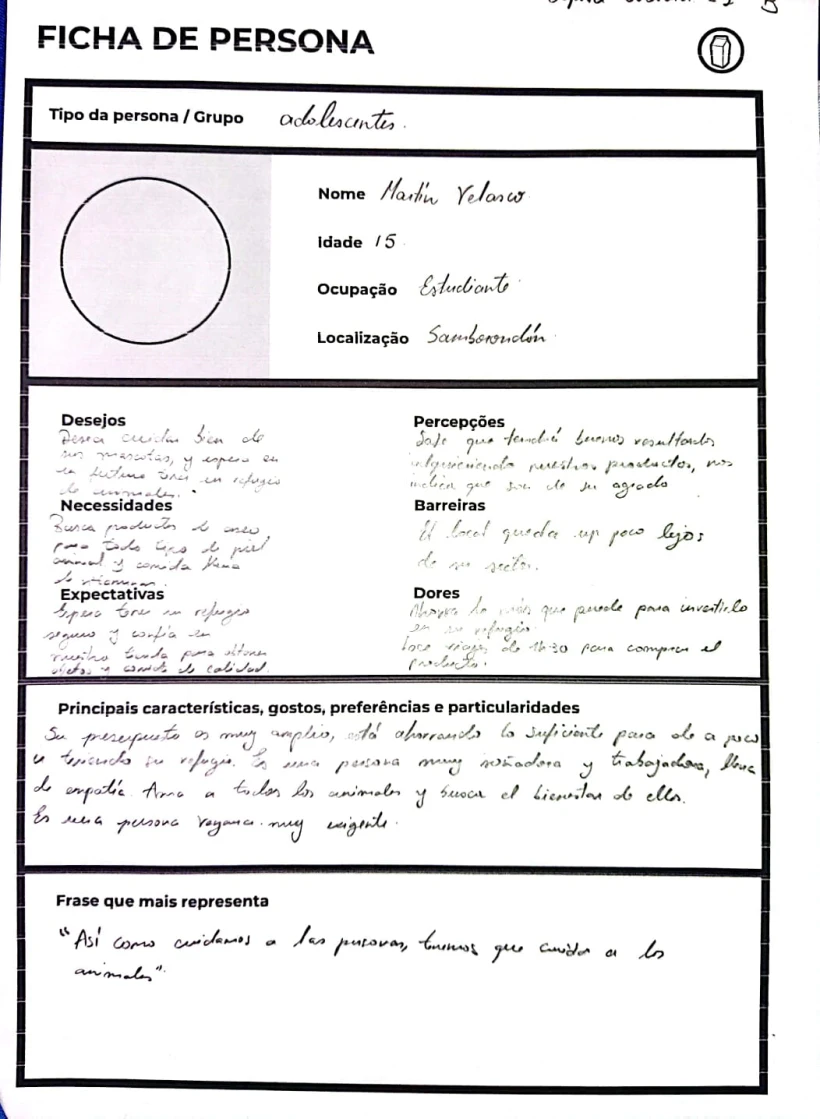 FICHA DE PERSONA
Tipo da persona / Grupo adolescentes.
Nome Martín Velasco
Idade 15
Ocupação Estudiante
Localização Samborondón
Desejos
Desea cuidar bien de
sus mascotas, y espera en
un futuro tener un refugio
de animales.
Necessidades
Busca productos de aseo
para todo tipo de piel
animal y comida llena
de vitaminas.
Expectativas
Espera tener un refugio
seguro y confía en
nuestra tienda para obtener
objetos y comida de calidad.
Percepções
Sabe que tendrá buenos resultados
adquiriendo nuestros productos, nos
indica que son de su agrado
Barreiras
El local queda un poco lejos
de su sector.
Dores
Ahorra lo más que puede para invertirlo
en su refugio.
viajes de 1h30 para comprar el
producto.
Principais características, gostos, preferências e particularidades
Su presupuesto es muy amplio, está ahorrando lo suficiente para de a poco
ir teniendo su refugio. Es una persona muy soñadora y trabajadora, llena
de empatía. Ama a todos los animales y busca el bienestar de ellos.
Es una persona vegana muy exigente.
Frase que mais representa
"Así como cuidamos a las personas, tenemos que cuidar a los
animales".